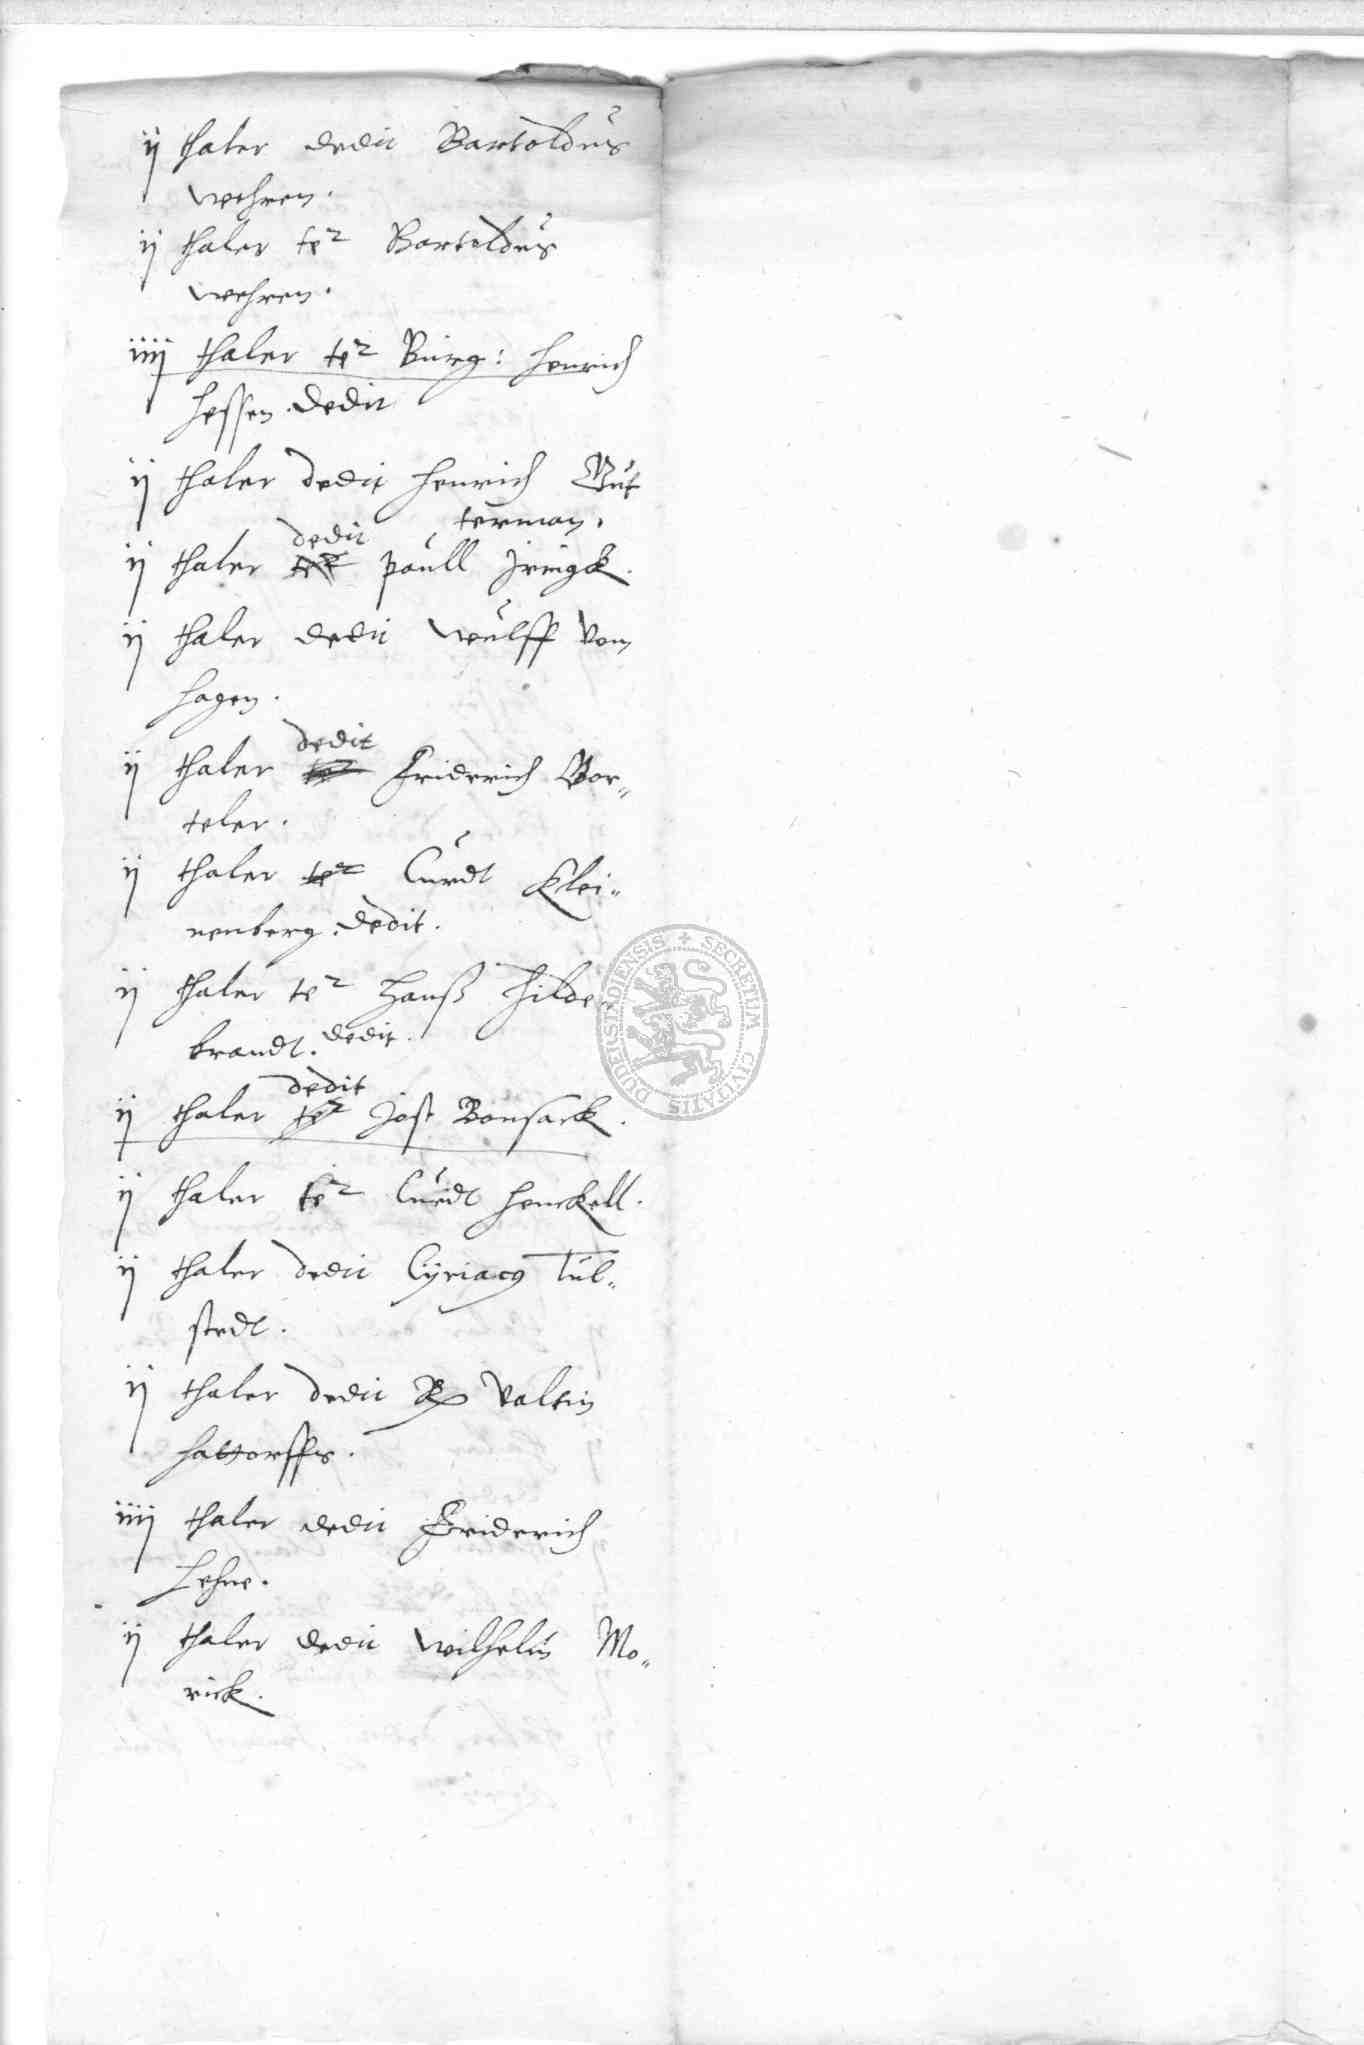 ij thaler dedit Bartoldus
Wehren.
ij thaler te2 Bartoldus
Wehren.
iiij thaler te2 Burg: Henrich
Hessen. dedit
ij thaler dedit Henrich But
terman.
dedit
ij thaler te2 paull Jringk.
ij thaler dedit Wulff Von
Hagen.
dedit
ij thaler te2 Friderich Bor„
teler.
ij thaler te2 Curdt Klei„
nenberg. dedit.
ij thaler te2 Hanß Hilde„
brandt. dedit.
dedit
ij thaler te2 Jost Bonsack.
ij thaler te2 Curdt Henckell.
ij thaler dedit Cyriacg Tul„
stedt.
ij thaler dedit Valtin
Hattorffs.
iiij thaler dedit Friderich
Lehne.
ij thaler dedit Wilhelm Mo„
rick.
SECRETUM CIVITATIS DUDERSTADIENSIS